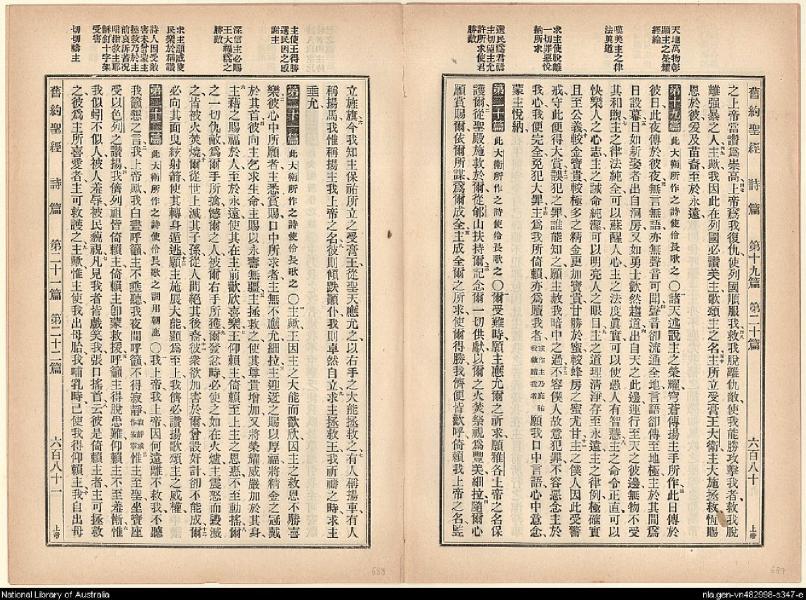 舊約聖經 詩篇 第十九篇 第二十篇 六百八十 上帝
天地萬物彰
顯主之榮耀
經綸
法與道
求主使脫離
一切罪愆悅
納所求
選民為君禱
主切願主允
許所求使君
勝敵
之上帝當讚為崇高上帝為我復仇使列國順服我救我脫離仇敵使我能勝攻擊我者救我脫
離強暴之人主歟我因此在列國必讚美主歌頌主之名主所立受膏王大衛主大施拯救恆賜
恩於彼愛及苗裔至於永遠
第十九篇 此大衛所作之詩使伶長歌之 〇諸天述說主之榮耀穹蒼傳揚主手所作此日傳於
彼日此夜傳於彼夜無言無語亦無聲音可聞聲音卻流通全地言語卻傳至地極主於其間為
日設幕日如新娶者出自洞房又如勇士歡然趨道出自天之此邊運行至天之彼邊無物不受
其和煦主之律法純全可以蘇醒人心主之法度真實可以使愚人有智慧主之命令正直可以
快樂人之心志主之誡命純潔可以明亮人之眼目主之道理清淨存至永遠主之律例極確實
且至公義較金寶貴較極多之精金更加寶貴甘勝於蜜較蜂房之蜜尤甘主之僕人因此受警
戒守此便得大賞誤犯之罪誰能知之願主赦我暗中之過不容僕人故意犯罪不容惡念主於
我心我便完全免犯大罪主為我所倚賴亦為贖我者 願我口中言語心中意念
蒙主悅納
第二十篇 此大衛所作之詩使伶長歌之 〇爾受難時願主應允爾之祈求願雅各上帝之名保
護爾從聖殿施救於爾從郇山扶持爾記念爾一切供獻以爾之火焚祭視為豐美細拉隨爾心
願賞賜爾依爾所謀為爾成全主成全爾之所求使爾得勝我儕便皆歡呼倚賴我上帝之名豎
主使王得勝
選民因之感
謝主
深信主必賜
王大福為之
勝敵
求主顯威使
民樂於稱讚
詩人因受敵
切切禱主
立旌旗今我知主保祐所立之受膏王從聖天應允之以右手之大能拯救之有人稱揚車有人
稱揚馬我惟稱揚主我上帝之名彼則傾跌顛仆我則卓然自立求主拯救王我祈禱之時求主
垂允
第二十一篇 此大衛所作之詩使伶長歌之 〇主歟王因主之大能而歡欣因主之救恩不勝喜
樂彼心中所願者主悉賞賜口中所求者主無不應允細拉主迎迓之賜以厚福將精金之冠戴
於其首彼向主乞求生命主賜以永壽無疆主拯救之使其尊貴增加又將榮耀威嚴加於其身
主藉之賜福於人至於永遠使其在主前歡欣喜樂王仰賴主倚賴至上主之恩惠不至動搖爾
之一切仇敵為爾手所擒憾爾之人被爾右手所獲爾發忿時必使之如在火爐主震怒而毀滅
之皆被火焚燒爾從世上滅其子孫從人間絕其後裔彼眾欲加害於爾曾設奸計卻不能成爾
必向其面曳絃射箭使其轉身遁逃願主施展大能顯為至上我儕必讚揚歌頌主之威權
第二十二篇 此大衛所作之詩使伶長歌之 調用朝鹿 〇我上帝我上帝因何遠離不救我不聽
我籲懇之言我上帝歟我白晝呼籲主不垂聽我夜間呼籲不得寂靜 惟主至聖坐寶座
受以色列之讚揚我儕列祖皆倚賴主倚賴主卽蒙救援呼籲主得脫患難仰賴主不至羞慚惟
我似蚓不似人被人羞辱被民藐視凡見我者皆戲笑我張口搖首云彼是倚賴主者主可拯救
之彼為主所喜愛者主可救護之主歟惟主使我出母胎我哺乳時已使我得仰賴主我自出母
舊約聖經 詩篇 第二十一篇 第二十二篇 六百八十一 上帝
688
687
National Library of Australia
nla.gen-vn482998-s347-e